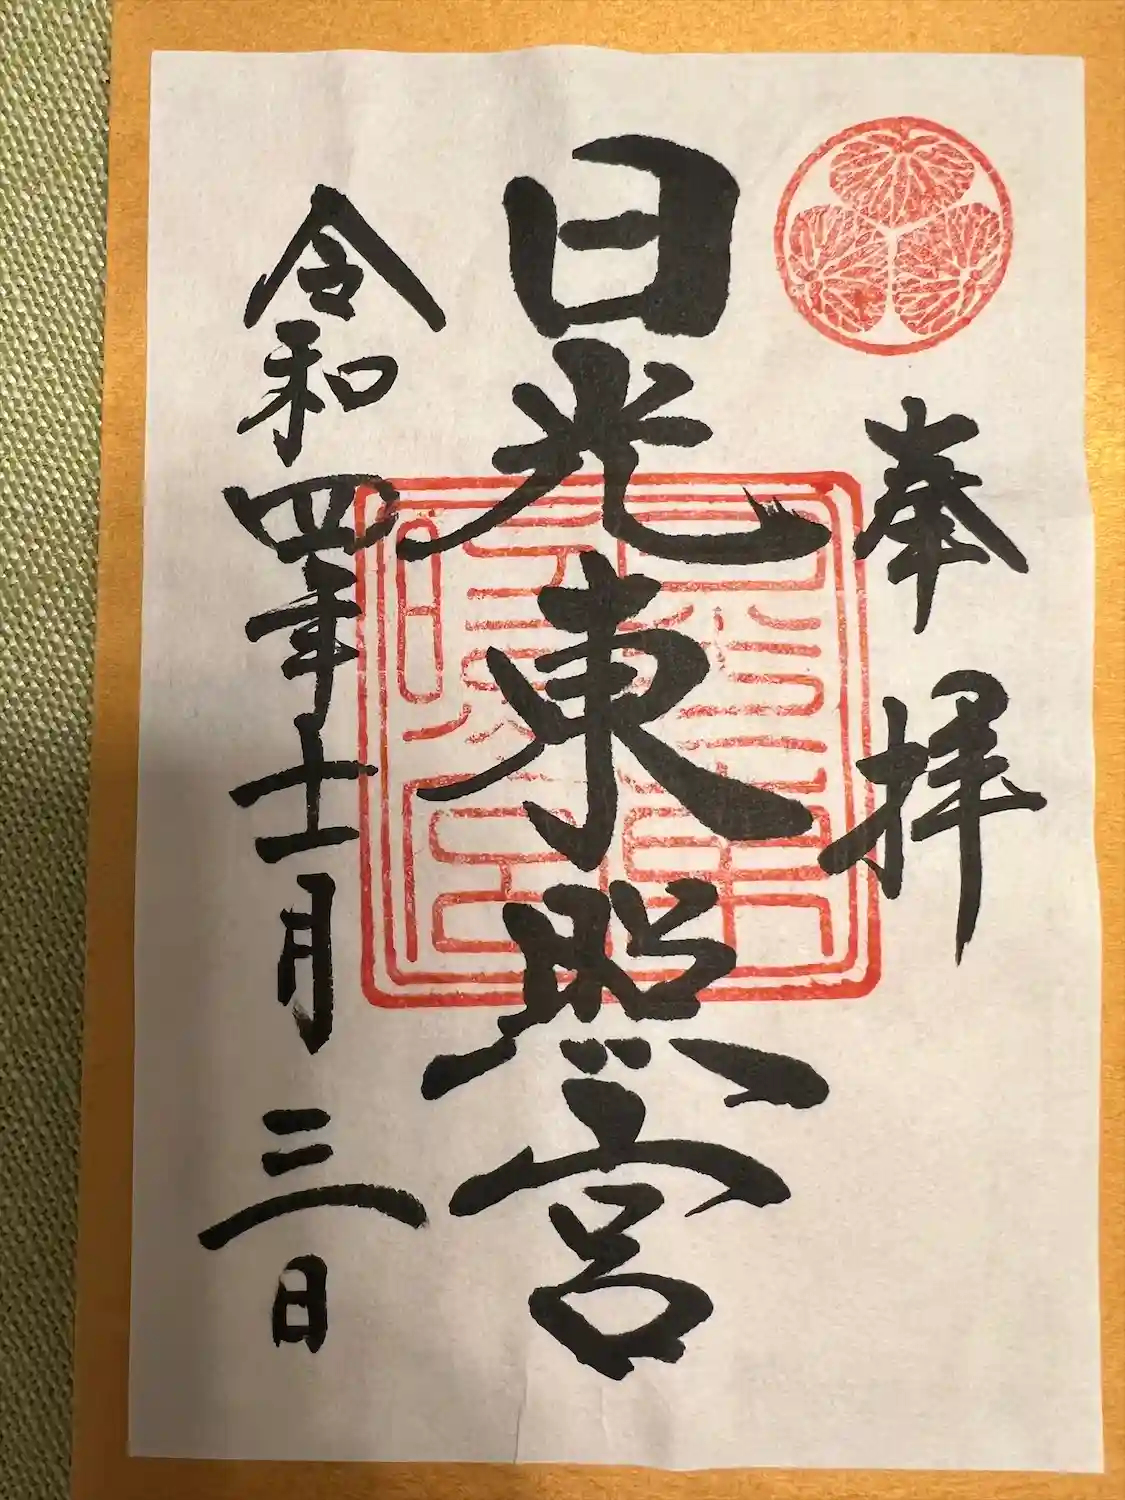 奉拝
日光東照宮
令和四年十一月三日